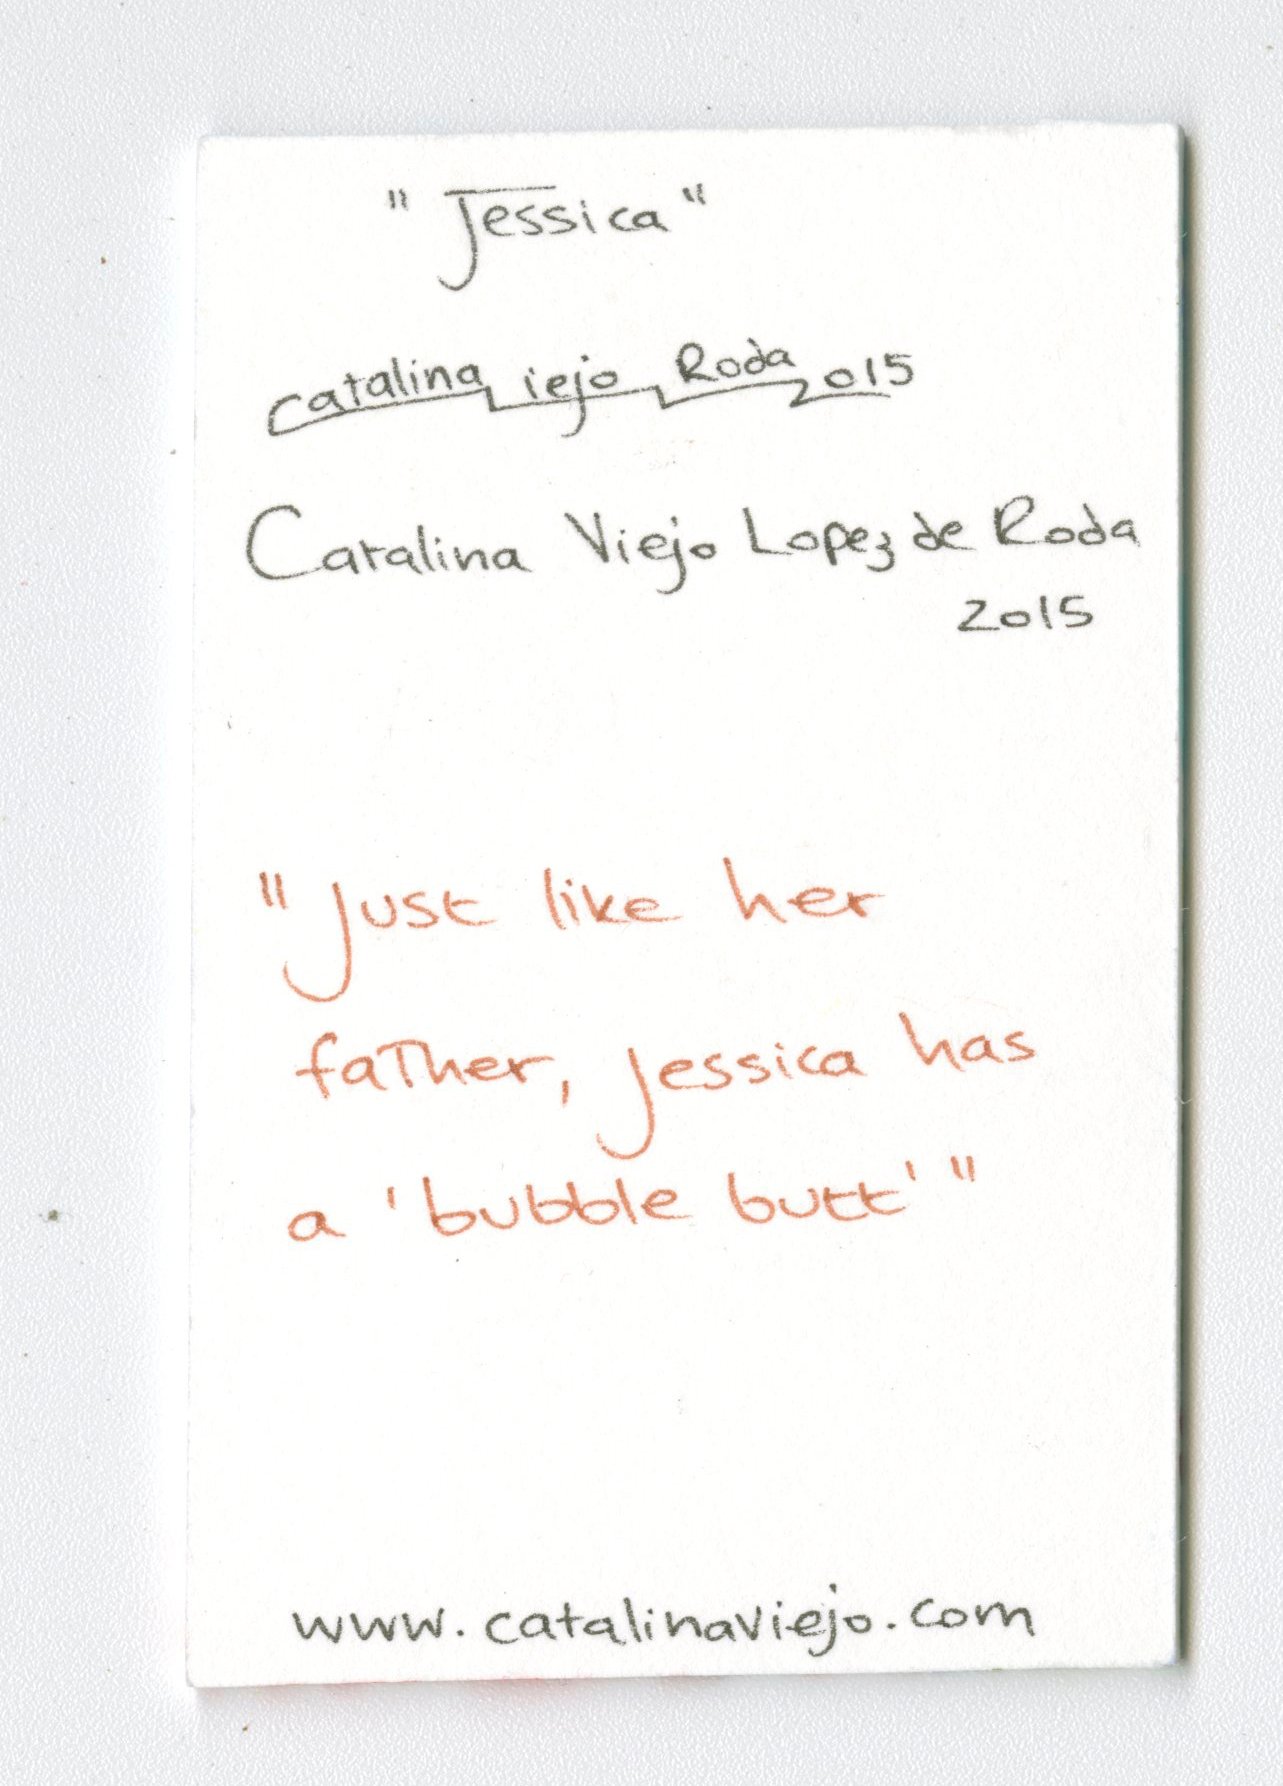 "Jessica"
Catalina Viejo Roda 2015
Catalina Viejo Lopez de Roda
2015
"Just like her
father, Jessica has
a 'bubble butt'"
www.catalinaviejo.com